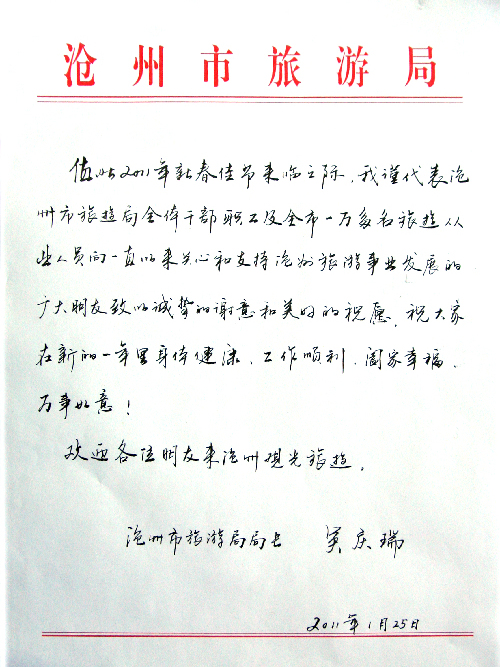 沧州市旅游局
值此2011年新春佳节来临之际,我谨代表沧
州市旅游局全体干部职工及全市一万多名旅游从
业人员向一直以来关心和支持沧州旅游事业发展的
广大朋友致以诚挚的谢意和美好的祝愿。祝大家
在新的一年里身体健康,工作顺利,阖家幸福,
万事如意!
欢迎各位朋友来沧州观光旅游。
沧州市旅游局局长 吴庆瑞
2011年1月25日